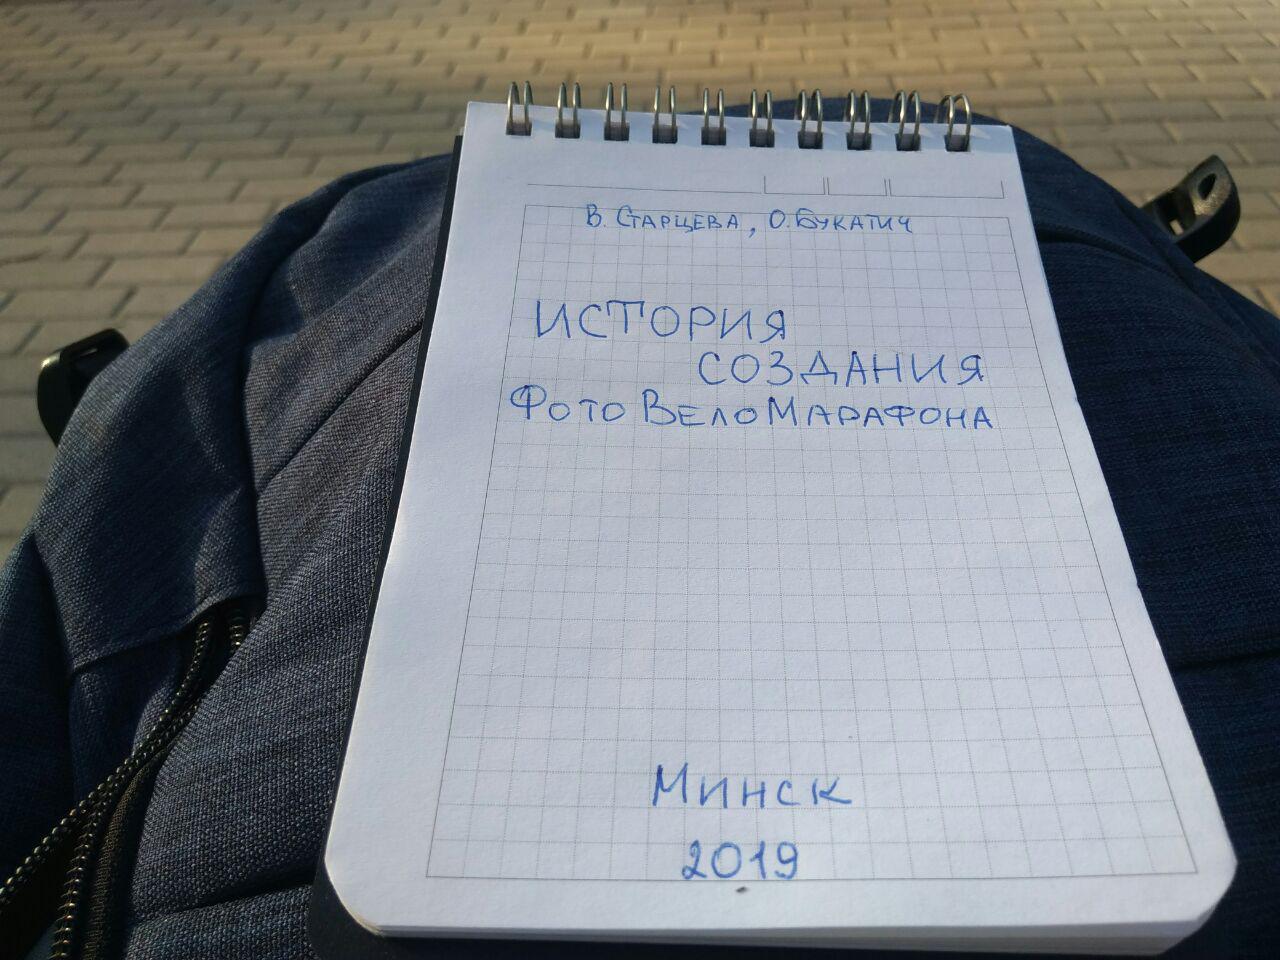 В. Старцева, О. Букатич
ИСТОРИЯ
СОЗДАНИЯ
ФотоВелоМарафона
Минск
2019